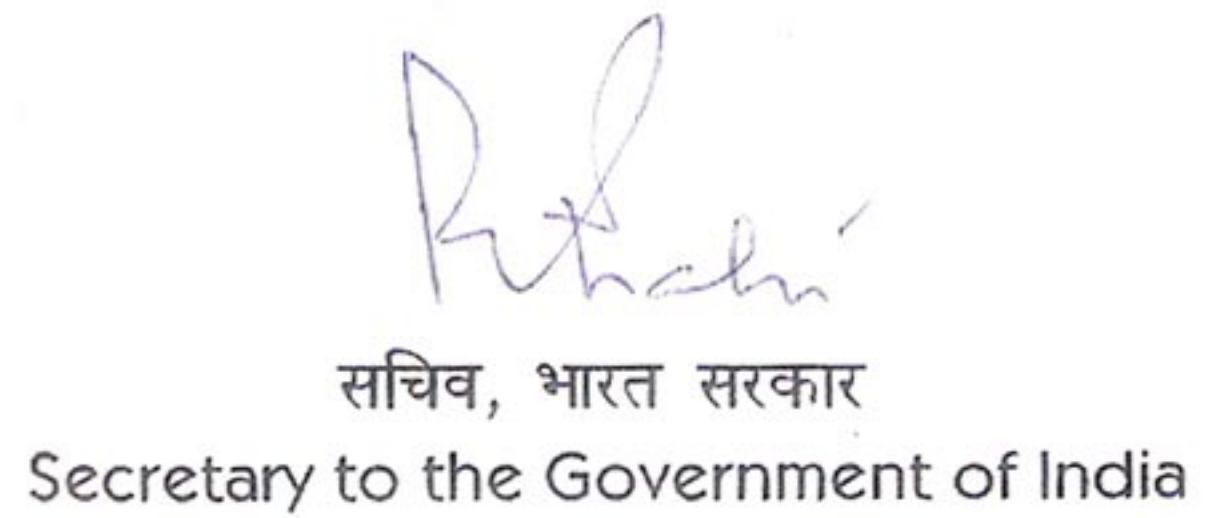 सचिव, भारत सरकार
Secretary to the Government of India